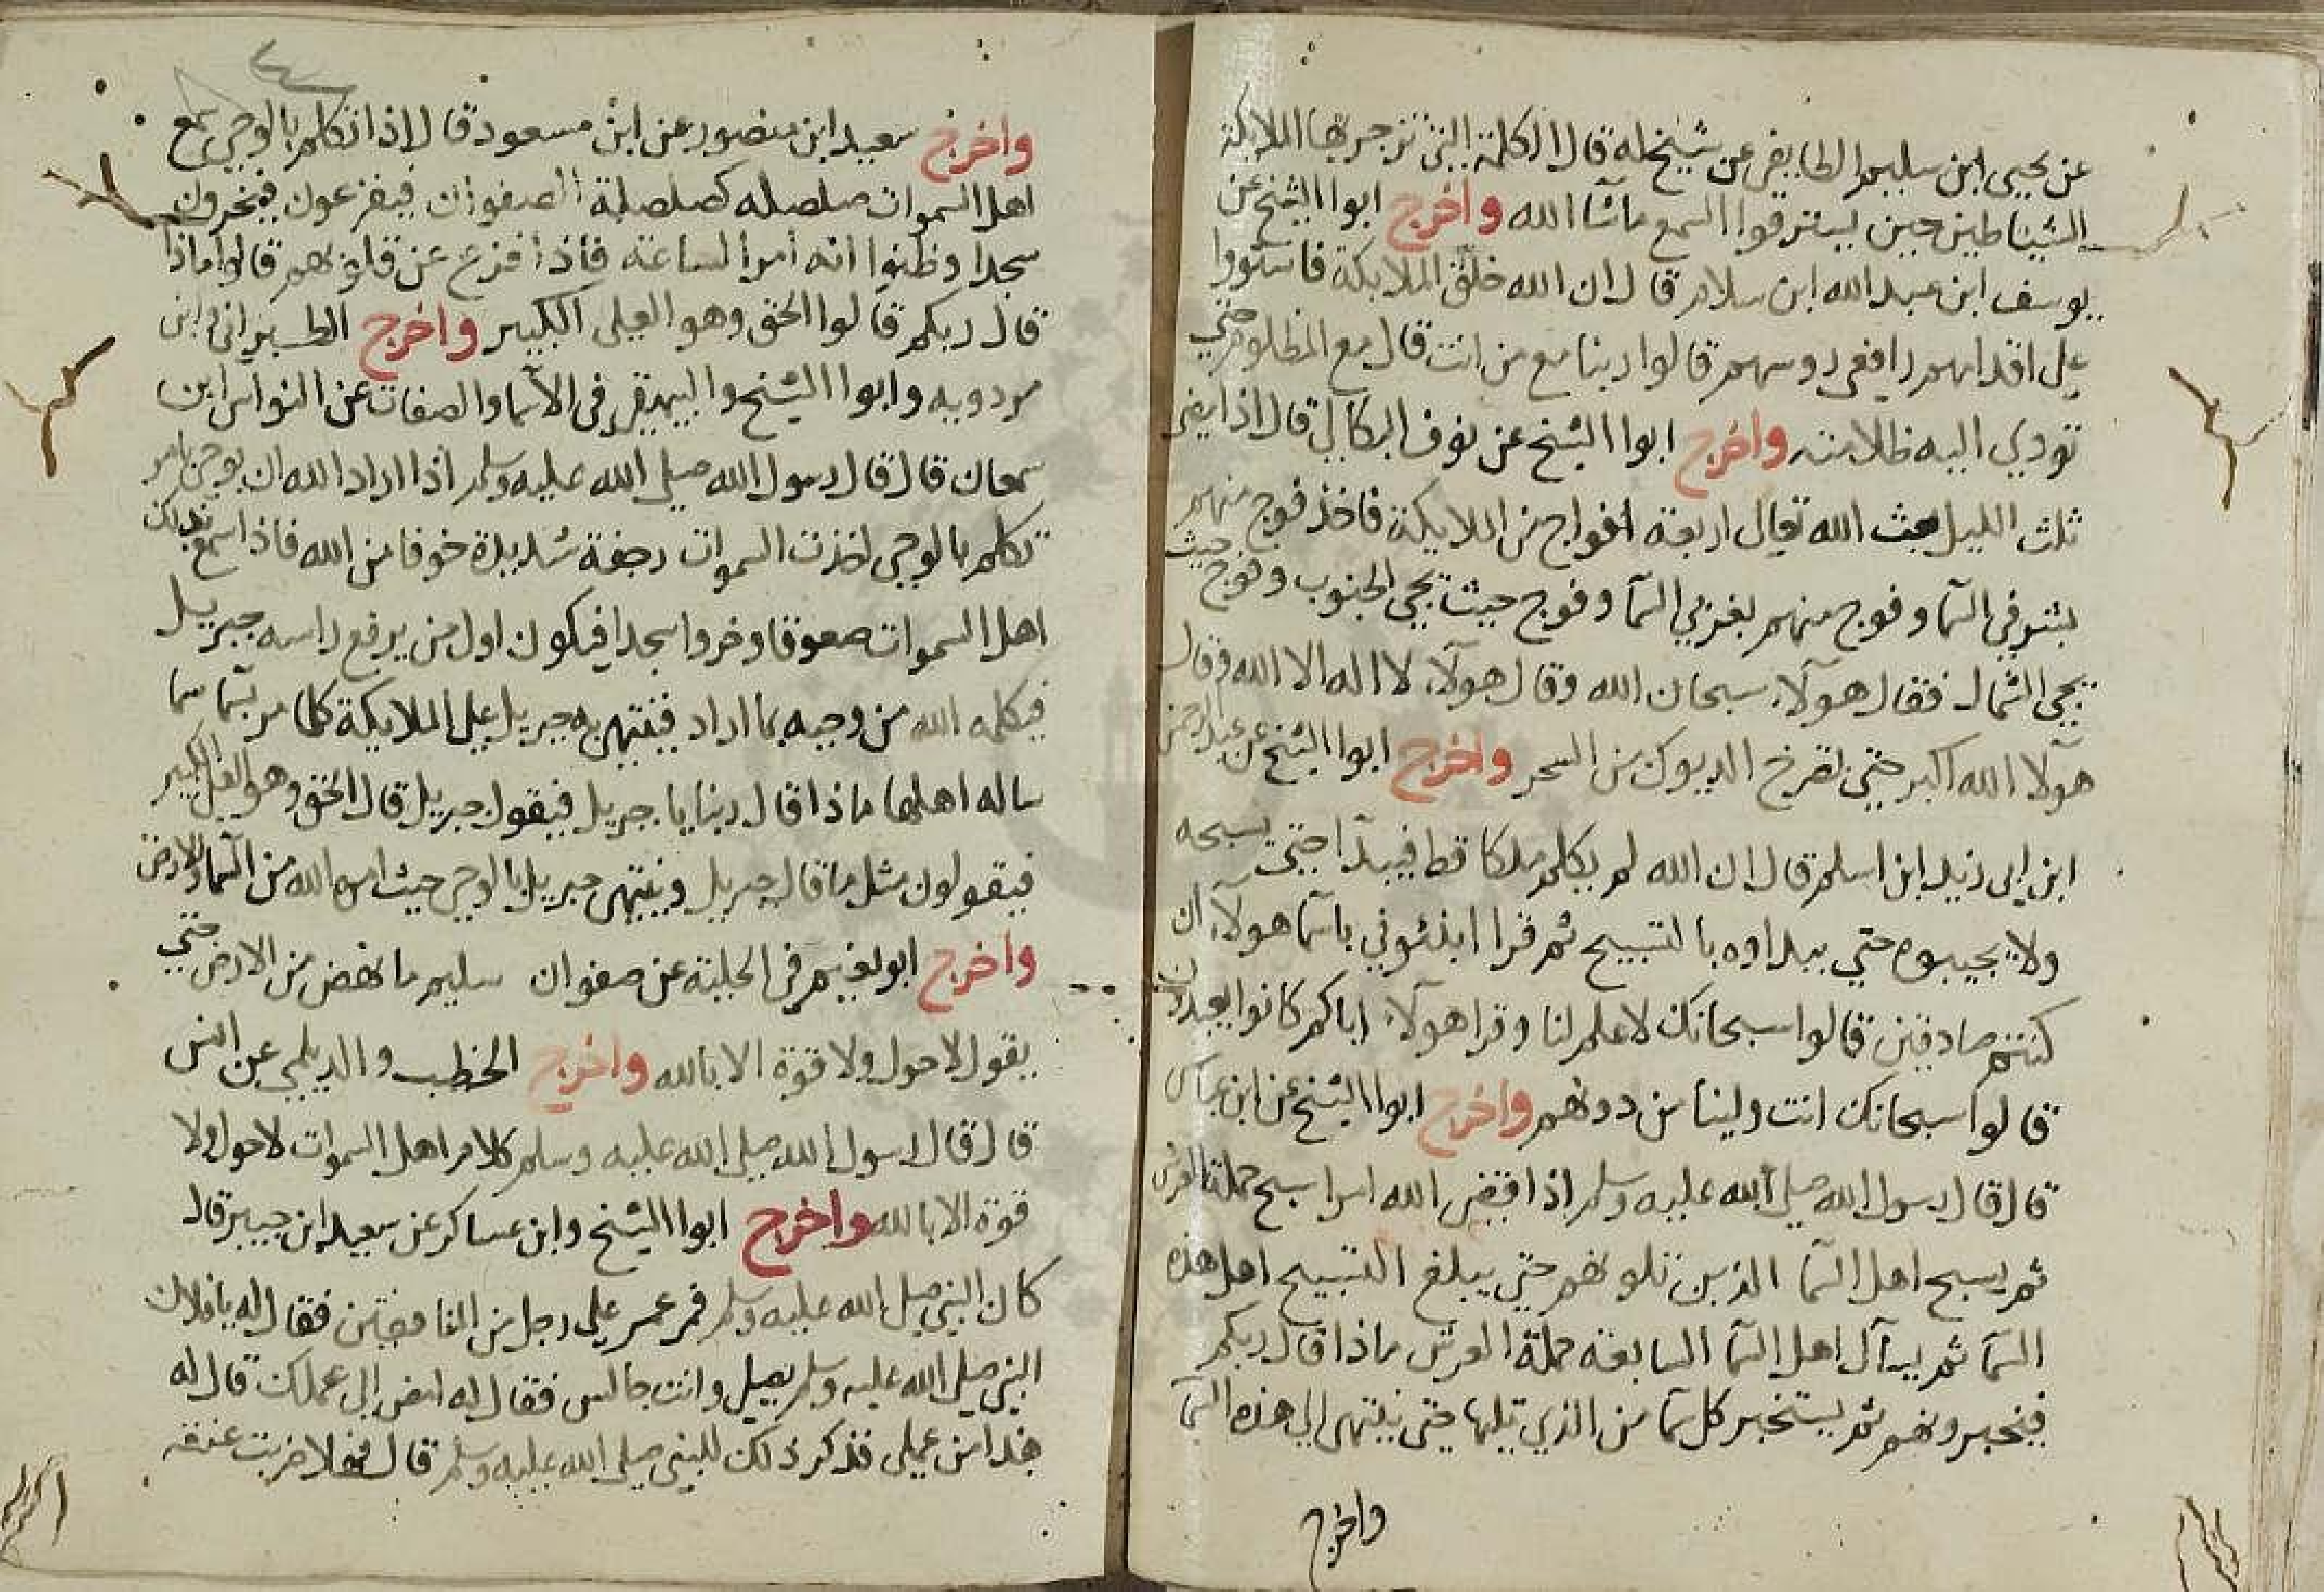 عن يحيى ابن سليم الطايفي عن شيخ له قال الكلمة التي تزجر بها الملايكة
الشياطين حين يسترقوا السمع ماشا الله واخرج ابوا الشيخ عن
يوسف ابن عبد الله ابن سلام قال ان الله خلق الملايكة فاستووا
على اقدامهم رافعي روسهم قالوا ربنا مع من انت قال مع المظلوم حتى
تودي اليه ظلامته واخرج ابوا الشيخ عن نوف البكالي قال اذا مضى
ثلث الليل بعث الله تعالى اربعة افواج من الملايكة فاخذ فوج منهم
بشرقي السما وفوج منهم بغربي السما وفوج حيث تجى الجنوب وفوج حيث
تجى الشمال فقال هولآء سبحان الله وقال هولآء لا اله الا الله وقال
هولآ الله اكبر حتى تصرخ الديوك من السحر واخرج ابوا الشيخ عن عبد الرحمن
ابن ابي زيد ابن اسلم قال ان الله لم يكلم ملكا قط فيبدا حتى يسبحه
ولا يجيبوه حتي يبداوه بالتسبيح ثم قرا انبئوني باسما هولآء ان
كنتم صادقين قالوا سبحانك لا علم لنا وقرا هولآء اياكم كانوا يعبدون
قالوا سبحانك انت ولينا من دونهم واخرج ابوا الشيخ عن ابن عباس
قال قال رسول الله صلى الله عليه وسلم اذا قضى الله امرا سبح حملة العرش
ثم يسبح اهل السما الذين تلونهم حتى يبلغ التسبيح اهل هذه
السما ثم يسآل اهل السما السابعة حملة العرش ماذا قال ربكم
فيخبرونهم ثم يستخبر كل سما من الذي تليها حتى ينتهى الي هذه السما
واخرج
واخرج سعيد ابن منصور عن ابن مسعود قال اذا تكلم بالوحي سمع
اهل السموات صلصله كصلصلة الصفوان فيفزعون فيخرون
سجدا وظنوا انه امر الساعة فاذا فزع عن قلوبهم قالوا ماذا
قال ربكم قالوا الحق وهو العلى الكبير واخرج الطبراني وابن
مردويه وابوا الشيخ والبيهقي في الاسما والصفات عن النواس ابن
سمعان قال قال رسول الله صلى الله عليه وسلم اذا اراد الله ان يوحى بامر
تكلم بالوحي اخذت السموات رجفة شديدة خوفا من الله فاذا سمع بذلك
اهل السموات صعوقا وخروا سجدا فيكون اول من يرفع راسه جبريل
فيكلمه الله من وحيه بما اراد فينتهى به جبريل على الملايكة كلما مر بسما سما
ساله اهلها ماذا قال ربنا يا جبريل فيقول جبريل قال الحق وهو العلى الكبير
فيقولون مثل ما قال جبريل وينتهى جبريل بالوحي حيث امره الله من السما والارض
واخرج ابو نعيم في الحلية عن صفوان سليم ما نهض من الارض حتي
يقول لا حول ولا قوة الا بالله واخرج الخطيب والديلمي عن انس
قال قال رسول الله صلى الله عليه وسلم كلام اهل السموات لا حول ولا
قوة الا بالله واخرج ابوا الشيخ وابن عساكر عن سعيد ابن جبير قال
كان النبي صلى الله عليه وسلم فمر عمر على رجل من المنافقين فقال له يا فلان
النبي صلى الله عليه وسلم يصلى وانت جالس فقال له امض الى عملك قال له
هذا من عملي فذكر ذلك للنبي صلى الله عليه وسلم قال فهلا ضربت عنقه